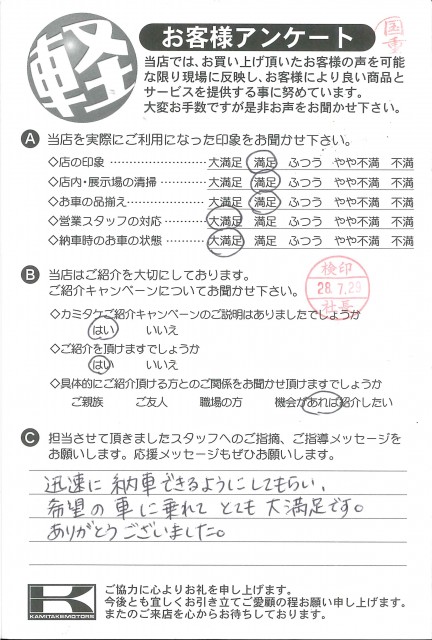 軽
お客様アンケート
国重
当店では、お買い上げ頂いたお客様の声を可能
な限り現場に反映し、お客様により良い商品と
サービスを提供する事に努めています。
大変お手数ですが是非お声をお聞かせ下さい。
A 当店を実際にご利用になった印象をお聞かせ下さい。
◇店の印象 大満足 満足 ふつう やや不満 不満
◇店内・展示場の清掃 大満足 満足 ふつう やや不満 不満
◇お車の品揃え 大満足 満足 ふつう やや不満 不満
◇営業スタッフの対応 大満足 満足 ふつう やや不満 不満
◇納車時のお車の状態 大満足 満足 ふつう やや不満 不満
B 当店はご紹介を大切にしております。
ご紹介キャンペーンについてお聞かせ下さい。
検印
28.7.29
社長
◇カミタケご紹介キャンペーンのご説明はありましたでしょうか
はい いいえ
◇ご紹介を頂けますでしょうか
はい いいえ
◇具体的にご紹介頂ける方とのご関係をお聞かせ頂けますでしょうか
ご親族 ご友人 職場の方 機会があれば紹介したい
C 担当させて頂きましたスタッフへのご指摘、ご指導メッセージを
お願いします。応援メッセージもぜひお願いします。
迅速に納車できるようにしてもらい、
希望の車に乗れてとても大満足です。
ありがとうございました。
K
KAMITAKEMOTORS
ご協力に心よりお礼を申し上げます。
今後とも宜しくお引き立てご愛顧の程お願い申し上げます。
またのご来店を心からお待ちしております。